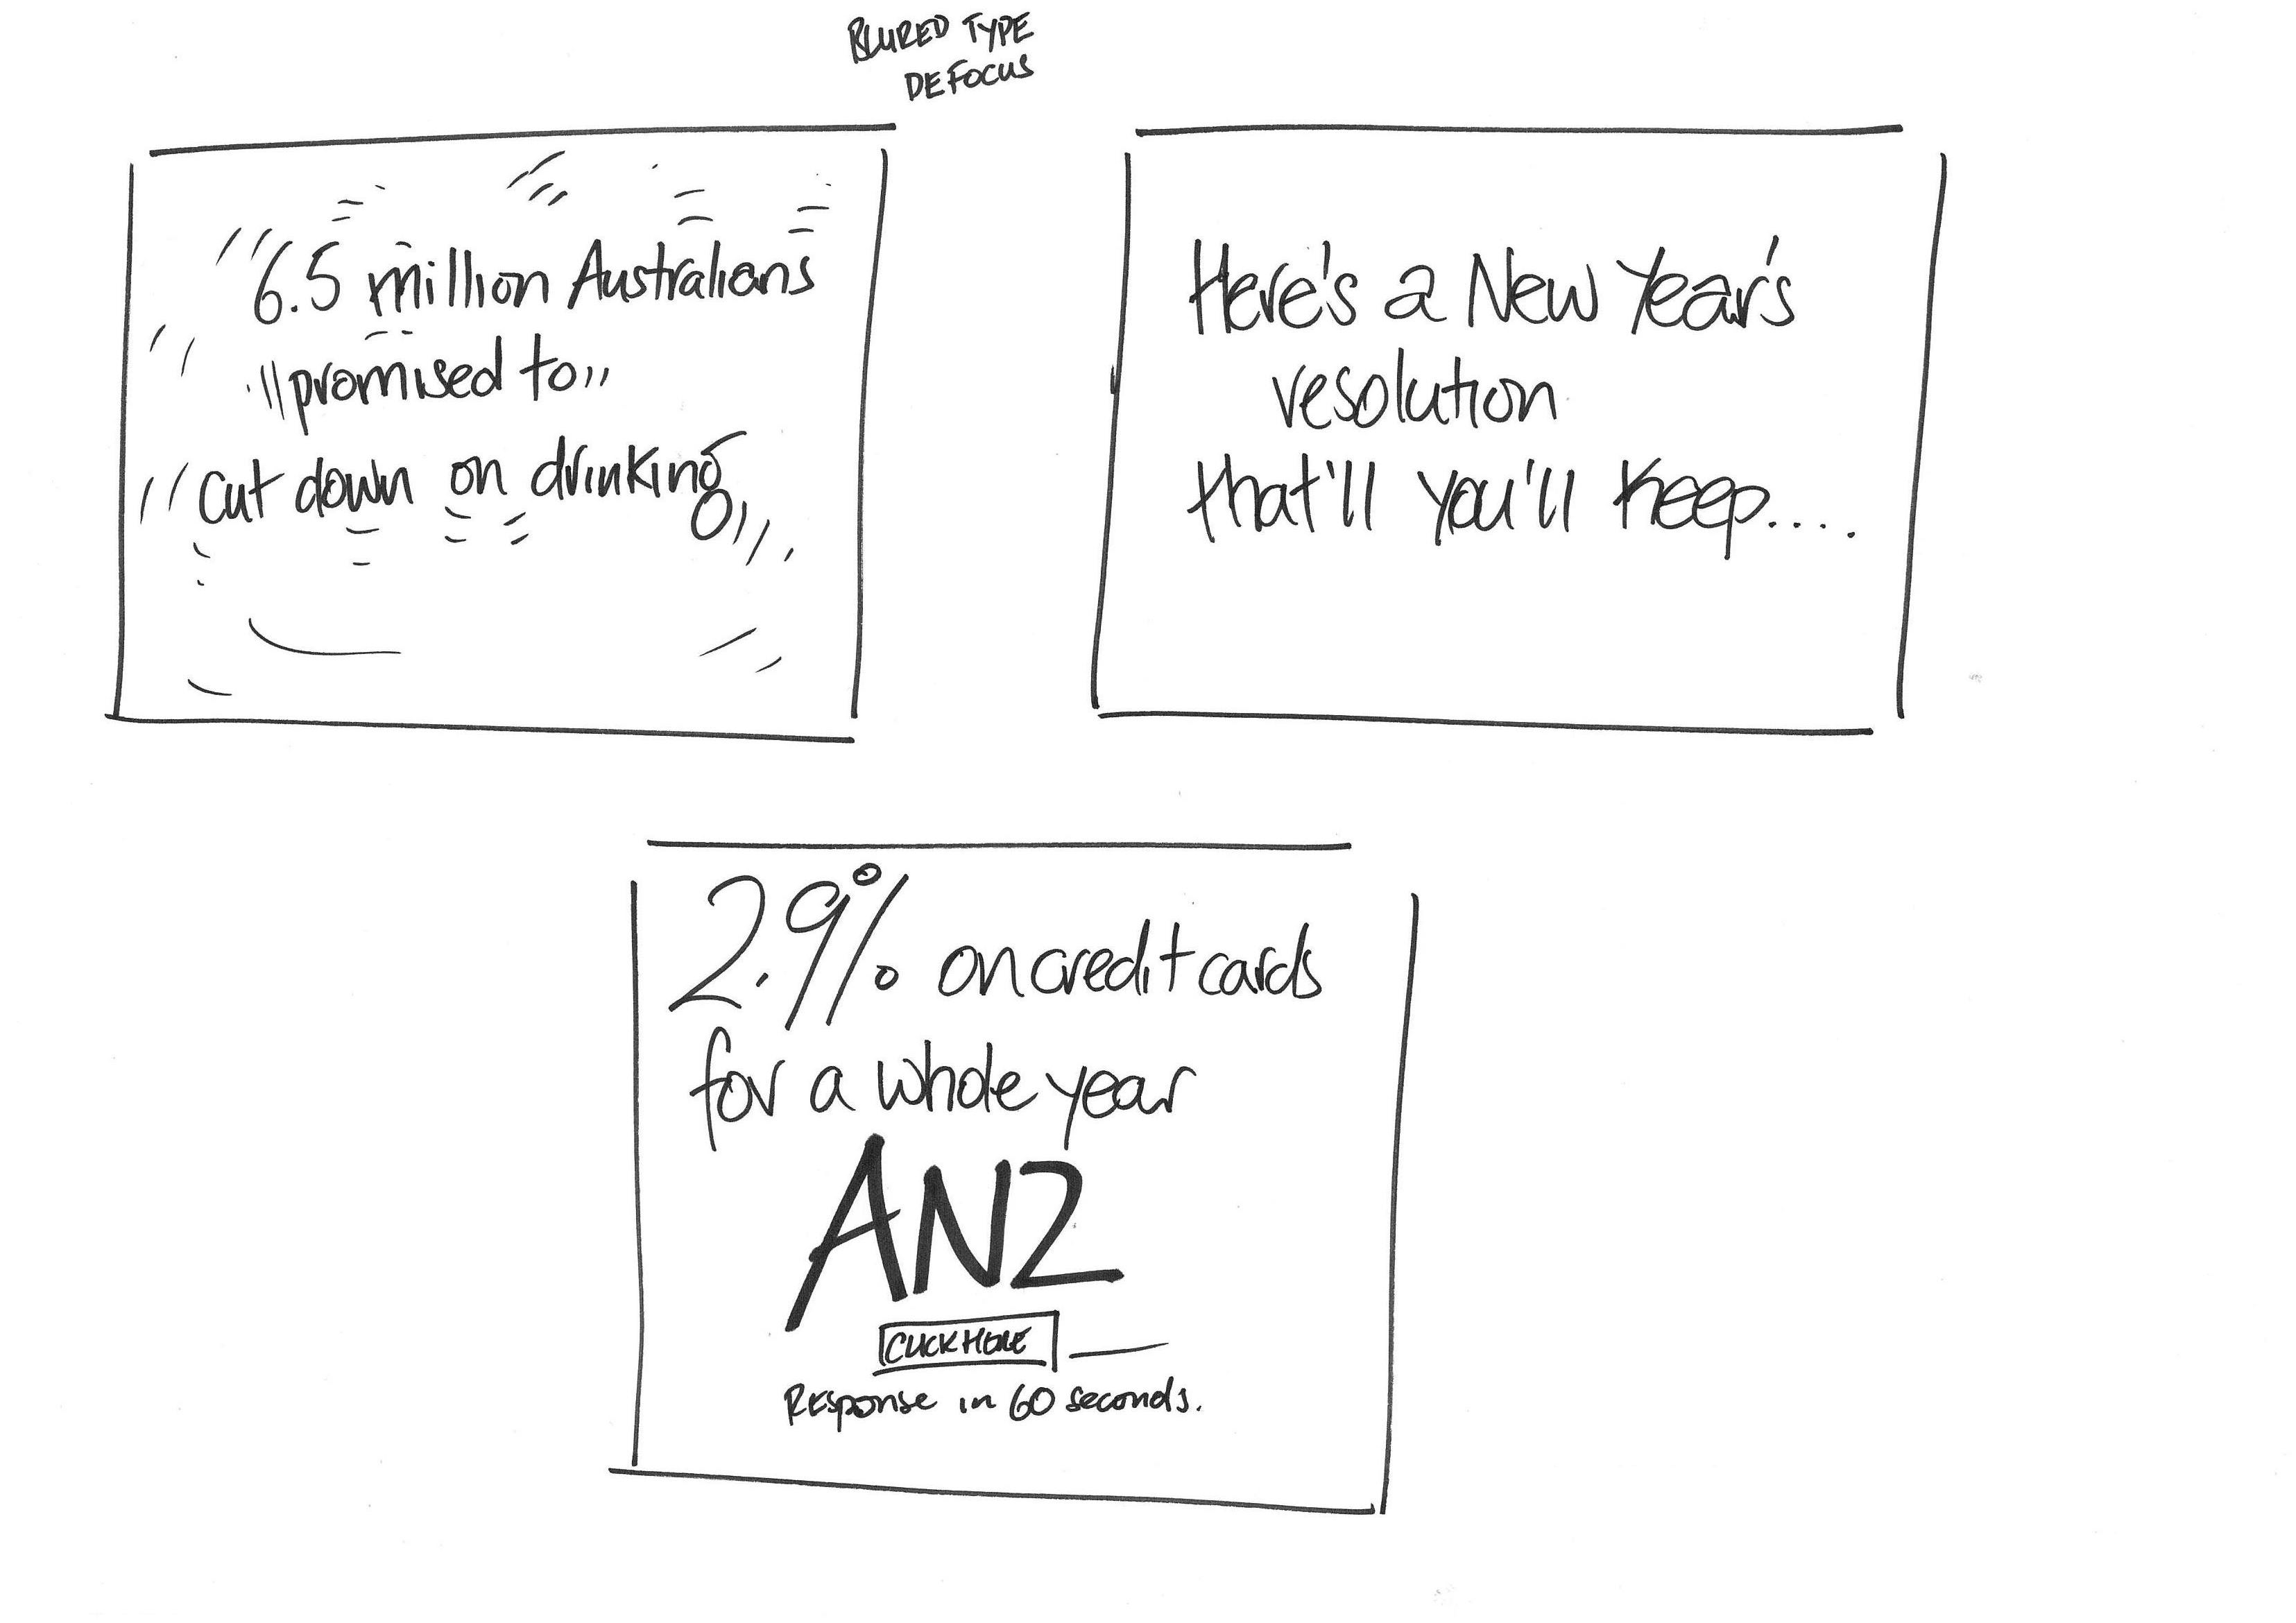 BLURED TYPE
DEFOCUS
6.5 million Australians
promised to
cut down on drinking
Here's a New Year's
resolution
that'll you'll keep....
2.9% on credit cards
for a whole year
ANZ
CLICK HERE
Response in 60 seconds.